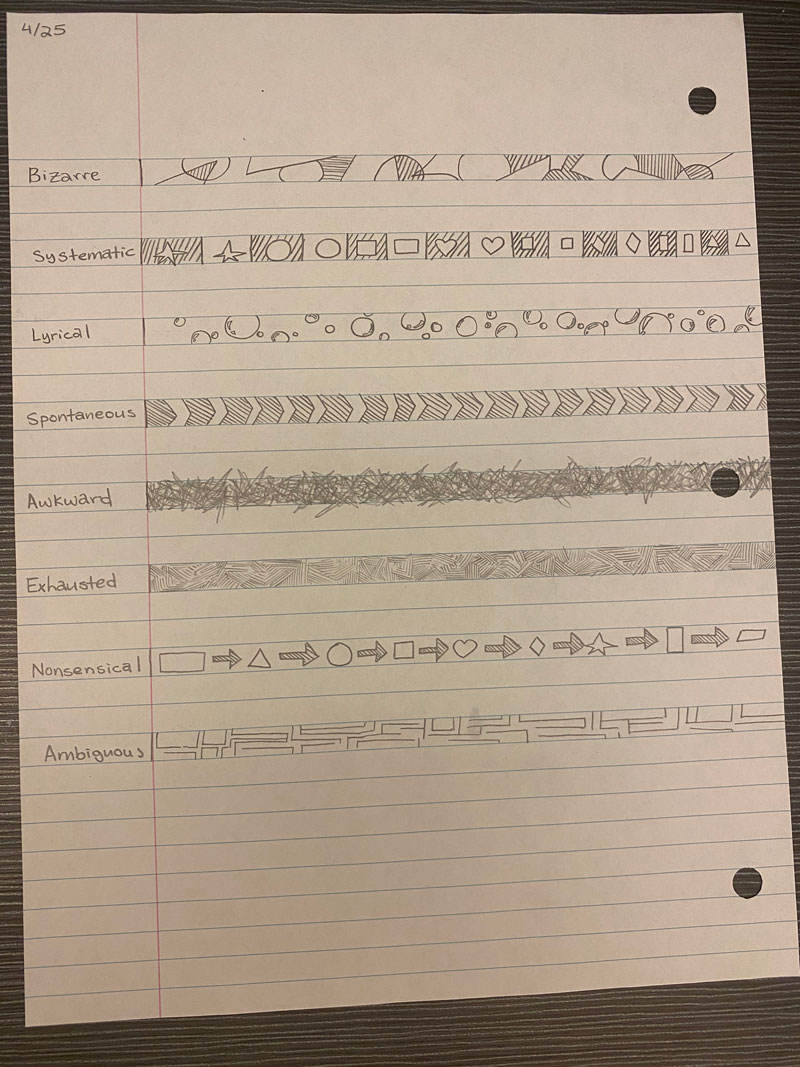 4/25
Bizarre
Systematic
Lyrical
Spontaneous
Awkward
Exhausted
Nonsensical
Ambiguous